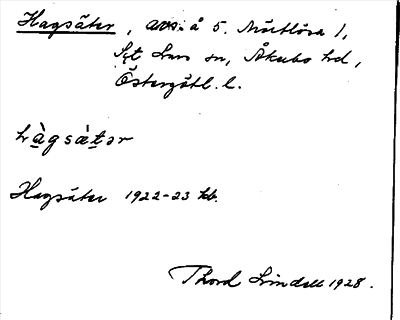 Hagsäter, avs. å 5. Mörtlösa 1,
St Lars sn, Åkerbo hd,
Östergötl. l.
hàgsä̀tər
Hagsäter 1922-23 kb.
Thord Lindell 1928.